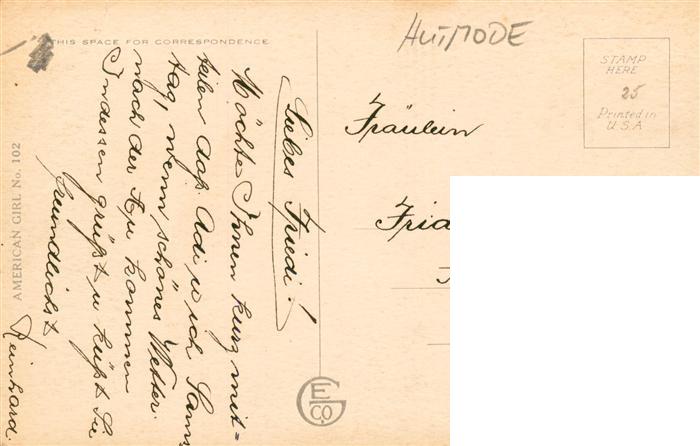 THIS SPACE FOR CORRESPONDENCE
HUTMODE
STAMP
HERE
25
Printed in
U.S.A
AMERICAN GIRL No. 102
Liebes Friedi!
Möchte Ihnen kurz mit=
teilen daß Adi u ich Sam
tag, wenn schönes Wetter
nach der kommen
Indessen grüßt u küßt Sie
freundlichst
Reinhard.
Fräulein
Frida
E G CO